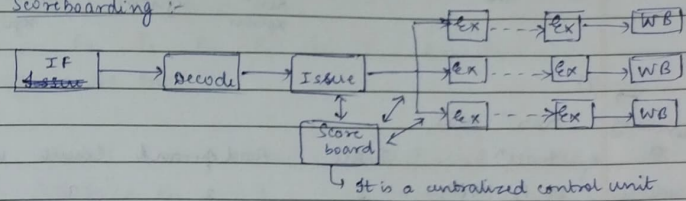 Scoreboarding :-
Ex Ex WB
IF
Issue
Decode Issue Ex Ex WB
Ex Ex WB
Score
board
It is a centralized control unit